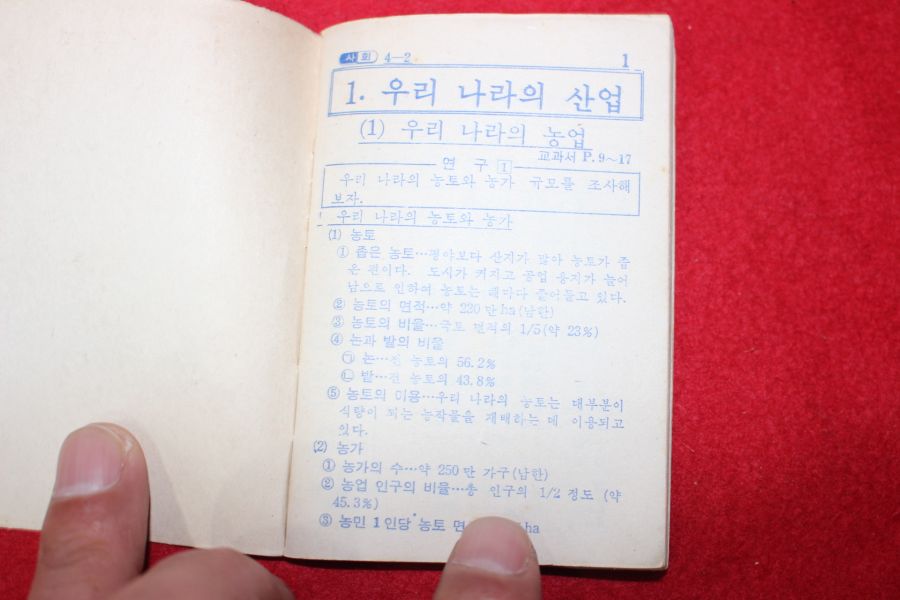 사회 4-2 1
1. 우리 나라의 산업
(1) 우리 나라의 농업
교과서 P. 9~17
연 구 1
우리 나라의 농토와 농가 규모를 조사해
보자.
1 우리 나라의 농토와 농가
(1) 농토
① 좁은 농토…평야보다 산지가 많아 농토가 좁
은 편이다. 도시가 커지고 공업 용지가 늘어
남으로 인하여 농토는 해마다 줄어들고 있다.
② 농토의 면적…약 220만ha(남한)
③ 농토의 비율…국토 면적의 1/5(약 23%)
④ 논과 밭의 비율
㉠ 논…전 농토의 56.2%
㉡ 밭…전 농토의 43.8%
⑤ 농토의 이용…우리 나라의 농토는 대부분이
식량이 되는 농작물을 재배하는 데 이용되고
있다.
(2) 농가
① 농가의 수…약 250만 가구(남한)
② 농업 인구의 비율…총 인구의 1/2 정도 (약
45.3%)
③ 농민 1인당 농토 면 ha